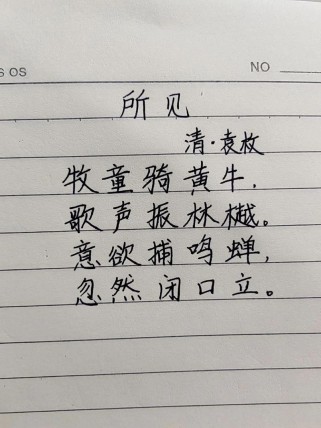 S OS
NO
所见
清·袁枚
牧童骑黄牛,
歌声振林樾。
意欲捕鸣蝉,
忽然闭口立。